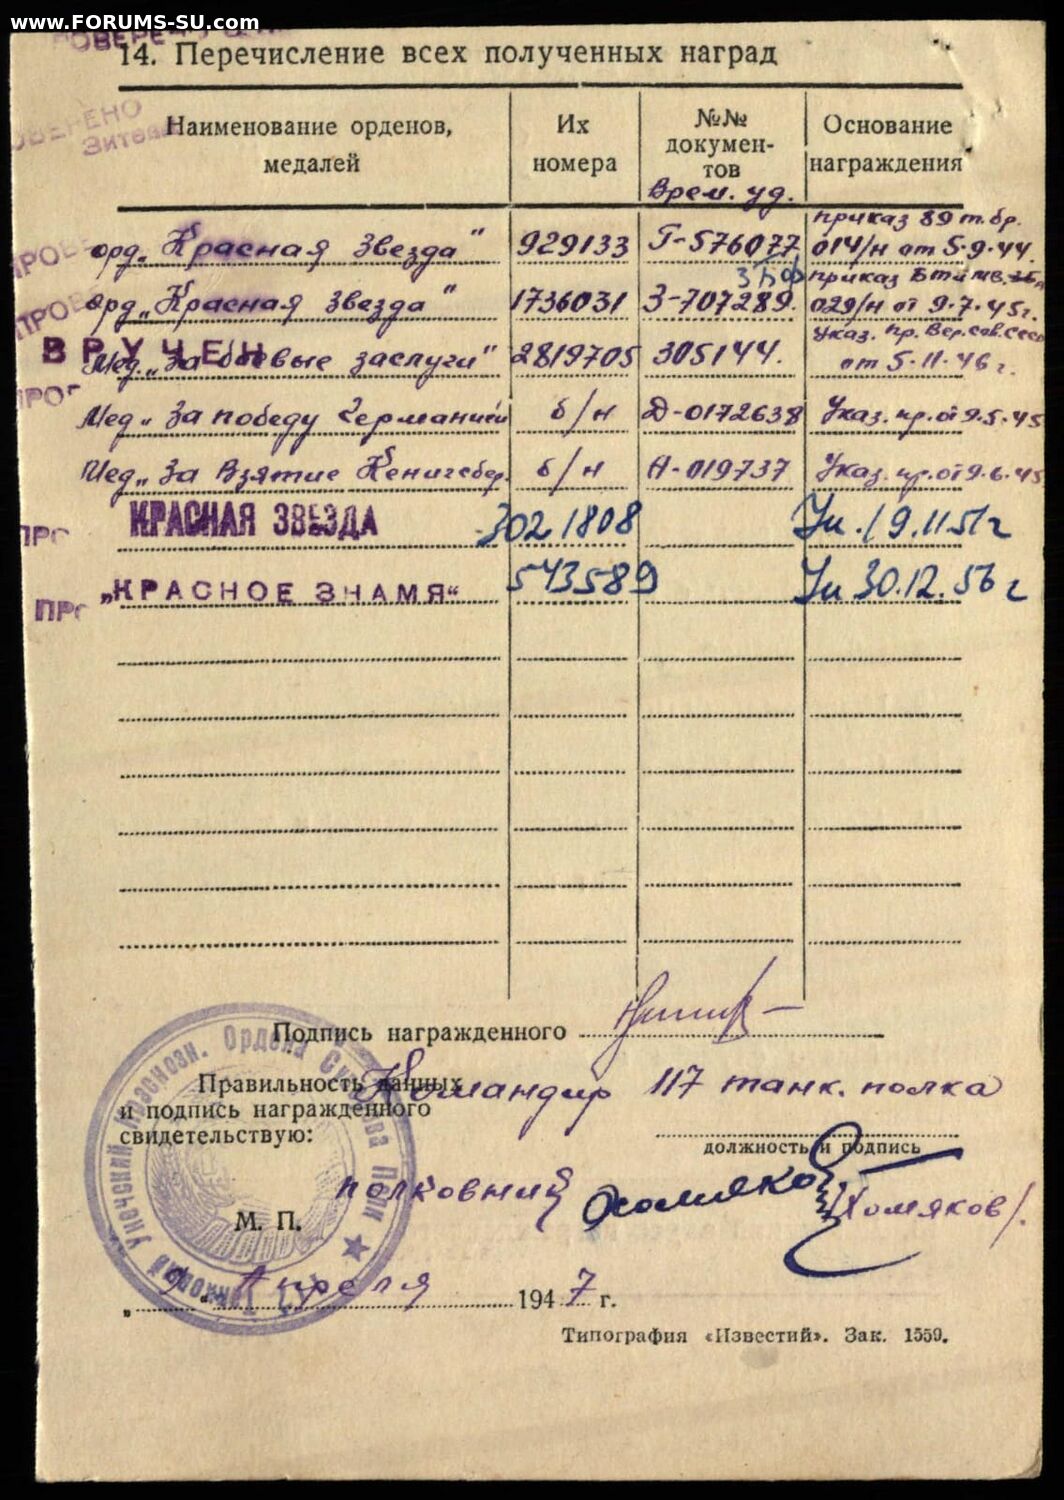 www.FORUMS-SU.com
14. Перечисление всех полученных наград
Наименование орденов, медалей
Их номера
№№ докумен-
тов
Врем. уд.
Основание награждения
орд. „Красная Звезда" 929133 Г-576077 приказ 89 т.бр. 014/н от 5.9.44.
орд. „Красная Звезда" 1736031 З-707289. приказ БТ и МВ 029/н от 9.7.45г.
ВРУЧЕН
Мед. „За боевые заслуги" 2819705 305144. Указ. Пр. Вер. сов. СССР от 5.11.46 г.
Мед „За победу Германией б/н Д-0172638 Указ. пр. от 9.5.45
Мед „За Взятие Кенигсбер. б/н А-019737 Указ. пр. от 9.6.45
КРАСНАЯ ЗВЕЗДА 3021808 Ук. 19.11.51г
„КРАСНОЕ ЗНАМЯ“ 543589 Ук 30.12.56 г
Подпись награжденного
Правильность данных
и подпись награжденного
свидетельствую:
Командир 117 танк. полка
должность и подпись
полковник Хомяков /Хомяков/.
М. П.
„9“ Апреля 1947 г.
Типография «Известий». Зак. 1559.